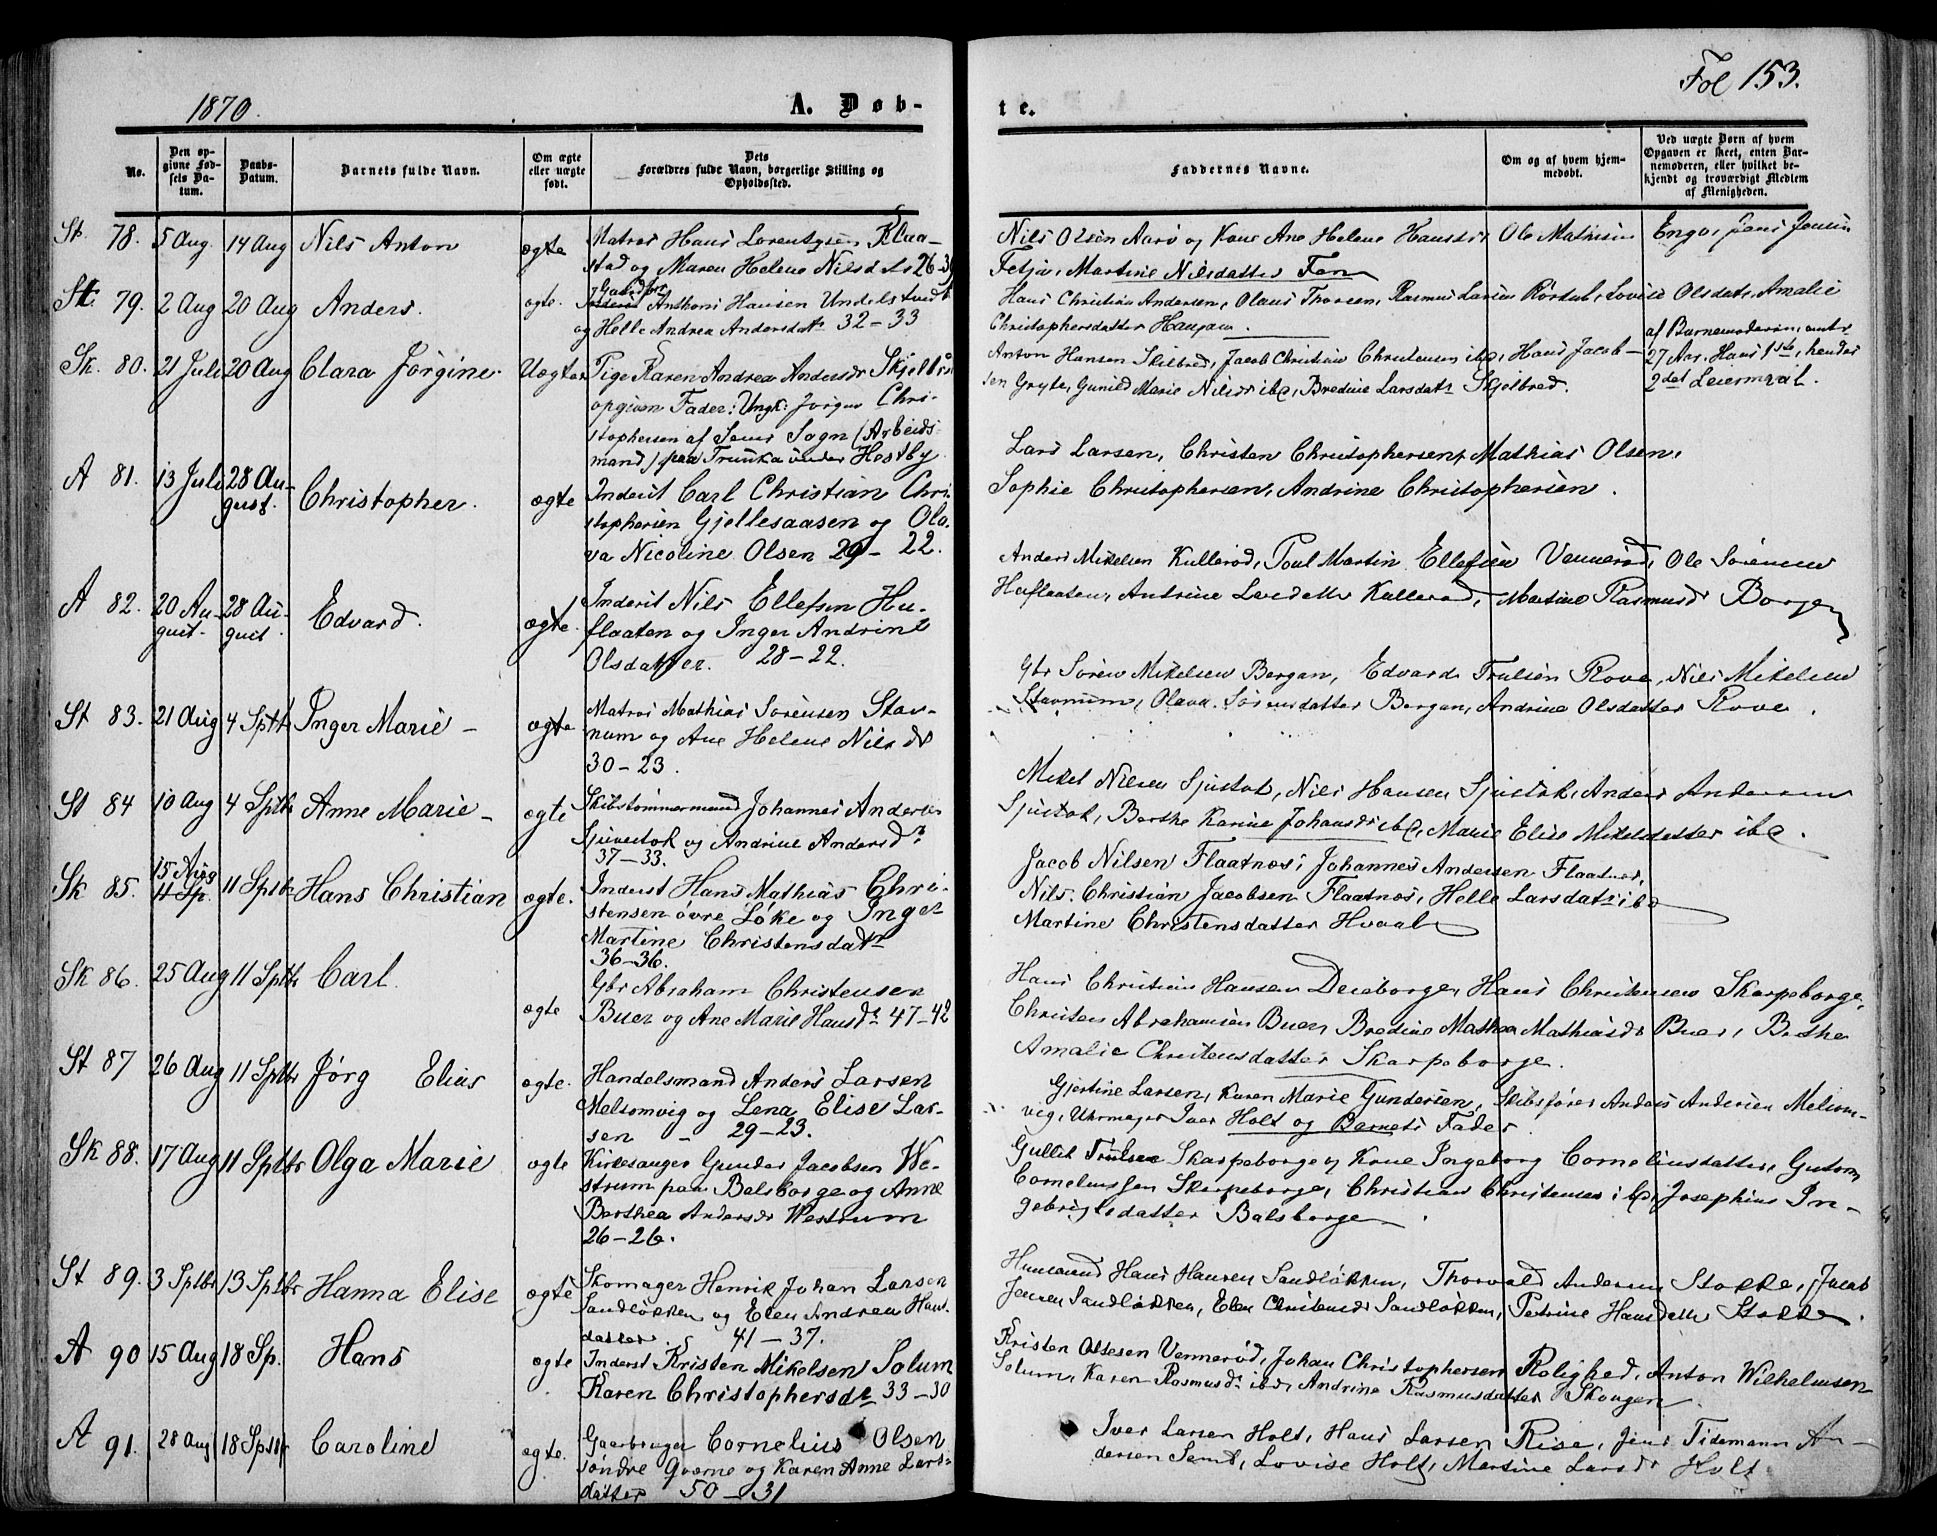 Fol 153.
1870.
A. Døb-
te.
No.
Den op-
givne Fød-
sels Da-
tum.
Daabs-
Datum.
Barnets fulde Navn.
Om ægte
eller uægte
født.
Dets
Forældres fulde Navn, borgerlige Stilling og
Opholdssted.
Faddernes Navne.
Om og af hvem hjem-
medøbt.
Ved uægte Børn af hvem
Opgaven er skeet, enten Bar-
nemoderen, eller hvilket be-
kjendt og troværdigt Medlem
af Menigheden.
St. 78. 5 Aug. 14 Aug Nils Anton ægte
Matros Hans Lorentzsen Klaa-
stad og Maren Helene Nilsd
Nils Olsen Aarø og Kone Ane Helene Hansdr Ole Mathisen Engø, Jens Jensen
Martine Nilsdatter Fen
St. 79. 2 Aug 20 Aug Anders. ægte.
Anthoni Hansen Undelstvedt
og Helle Andrea Andersdatr 32-33
Hans Christian Andersen, Olaus Thoresen, Rasmus Larsen Rørkol, Lovise Olsdatr, Amalie
Christophersdatter Haugan.
Sk. 80. 21 Juli 20 Aug Clara Jørgine. Uægte
Pige Karen Andrea Andersdr Skjelbre
opgiven Fader: Ungk: Jørgen Chri-
stophersen af Sems Sogn (Arbeids-
mand) paa Trunka under Hestby.
Anton Hansen Skilbred, Jacob Christian Christensen ibd, Hans Jacob-
sen Gryte, Gunild Marie Nilsdr ibd, Bredine Larsdatr Skjelbred.
af Barnemoderen,
27 Aar. Hans 1ste, hendes
2det Leiermaal.
A 81. 13 Juli 28 Au-
gust. Christopher. ægte
Inderst Carl Christian Chri-
stophersen Gjellesaasen og Ola-
va Nicoline Olsen 29-22.
Lars Larsen, Christen Christophersen, Mathias Olsen,
Sophie Christophersen, Andrine Christophersen.
A 82. 20 Au-
gust. 28 Au-
gust. Edvard. ægte.
Inderst Nils Ellefsen Hu-
flaaten og Inger Andrine
Olsdatter. 28-22.
Anders Mikelsen Kullerød, Poul Martin Ellefsen Vennerød, Ole Sørensen
Huflaaten, Antrine Kullerød, Martine Rasmusdr Borgen
St 83. 21 Aug 4 Sptbr Inger Marie - ægte
Matros Mathias Sørensen Stav-
num og Ane Helene Nilsdr
30-23.
Gbr Søren Mikelsen Bergan, Edvard Trulsen Rove, Nils Mikelsen
Stavnum, Olava Sørensdatter Bergan, Andrine Olsdatter Rove.
St 84 10 Aug 4 Sptbr Anne Marie - ægte
Skibstømmermand Johannes Anderse
Sjuestok og Andrine Andersdr
37-33.
Mikel Nilsen Sjustok, Nils Hansen Sjustok, Anders Andersen
Sjustok, Berthe Karine Johansdr ibd, Marie Elise Mikelsdatter ibd.
Sk 85. 15 Aug
11 Sp. 11 Sptbr Hans Christian ægte.
Inderst Hans Mathias Chri-
stensen øvre Løke og Inger
Martine Christensdatr
36-36.
Jacob Nilsen Flaatnes, Johannes Andersen Flaatnes,
Nils Christian Jacobsen Flaatnes, Helle Larsdatr ibd
Martine Christensdatter Hvaal
Sk 86. 25 Aug 11 Sptbr Carl ægte
Gbr Abraham Christensen
Buer og Ane Marie Hansdr 47-42
Hans Christian Hansen Deieborge, Hans Christensen Skarpeborge,
Christen Abrahamsen Buer, Bredine Mathea Mathiasdr Buer, Berthe
Amalie Christensdatter Skarpeborge.
St 87 26 Aug 11 Sptbr Jørg Elias ægte.
Handelsmand Anders Larsen
Melsomvig og Lena Elise Lar-
sen - 29-23.
Gjertine Larsen, Karen Marie Gundersen, Skibsfører Anders Andersen Melsom-
vig, Uhrmager Iver Holt og Barnets Fader.
Sk 88. 17 Aug 11 Sptbr Olga Marie ægte
Kirkesanger Gunder Jacobsen We-
strum paa Balsborge og Anne
Berthea Andersdr Westrum
26-26.
Gullik Trulsen Skarpeborge og Kone Ingeborg Corneliusdatter, Guttorm
Corneliussen Skarpeborge, Christian Christensen ibd, Josephine In-
gebrigtsdatter Balsborge
St 89. 3 Sptbr 13 Sptbr Hanna Elise ægte
Skomager Henrik Johan Larsen
Sandløkken og Elen Andrea Hans-
datter. 41-37.
Husmand Hans Hansen Sandløkken, Thorvald Andersen Stokke, Jacob
Jensen Sandløkken, Elen Christensdr Sandløkken, Petrine Hansdatter Stokke.
A 90 15 Aug 18 Sp. Hans ægte
Inderst Kristen Mikelsen Solum
Karen Christophersdr 33-30
Kristen Ottesen Vennerød, Johan Christophersen Rolighed, Anton Wilhelmsen
Solum, Karen Rasmusdr ibd, Andrine Rasmusdatter Skougen.
A 91. 28 Aug 18 Sptbr Caroline ægte.
Gaardbruger Cornelius Olsen
søndre Goerne og Karen Anne Lars-
datter 50-31
Iver Larsen Holt, Hans Larsen Rise, Jens Tidemann An-
dersen Sand, Lovise Holt, Martine Larsdr Holt